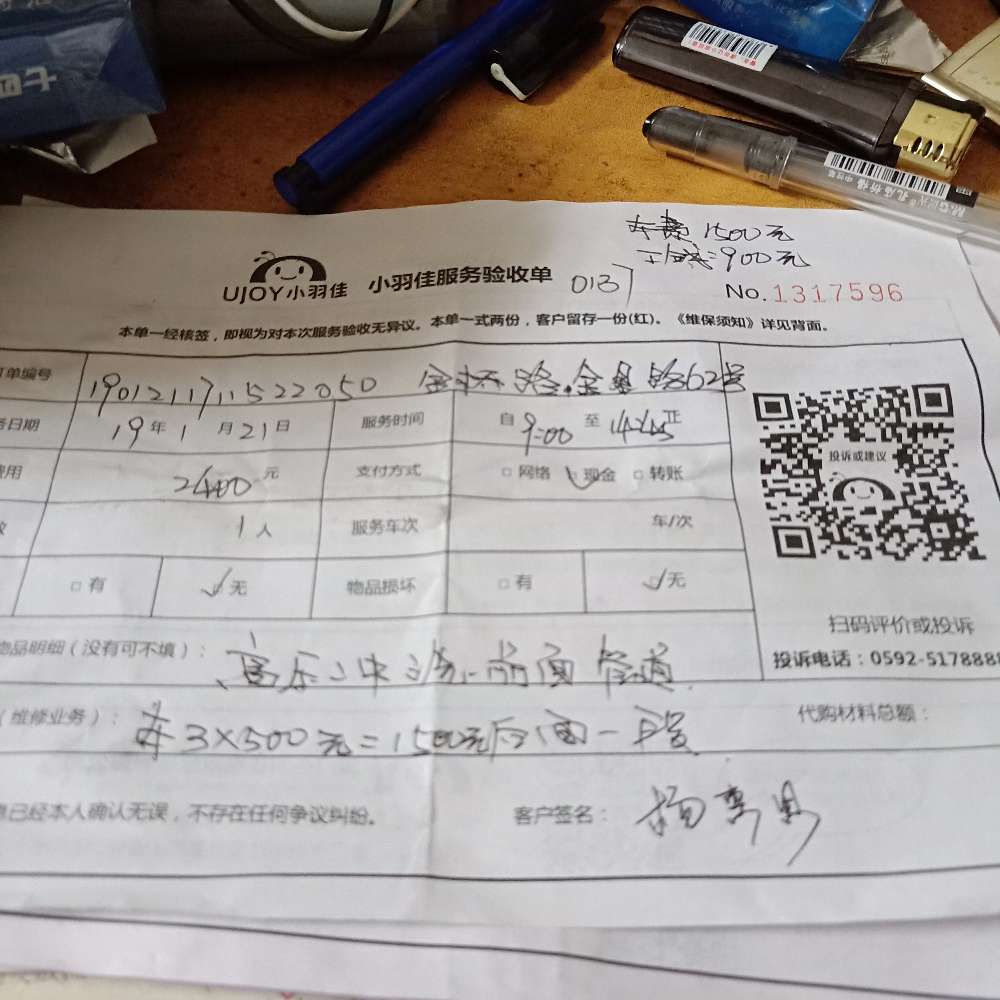 车费 1500元
:900元
UJOY小羽佳 小羽佳服务验收单 0137
No.1317596
本单一经核签，即视为对本次服务验收无异议。本单一式两份，客户留存一份(红)。《维保须知》详见背面。
单编号 190121171522050 路62号
日期 19年1月21日 服务时间 自9:00至14:45正
用 2400元 支付方式 □网络 ☑现金 □转账
1人 服务车次 车/次
□有 ☑无 物品损坏 □有 ☑无
投诉或建议
扫码评价或投诉
投诉电话：0592-5178888
物品明细（没有可不填）： 高压冲洗前面管道
（维修业务）： 车3×500元=1500元后面一段
代购材料总额：
息已经本人确认无误，不存在任何争议纠纷。 客户签名： 杨